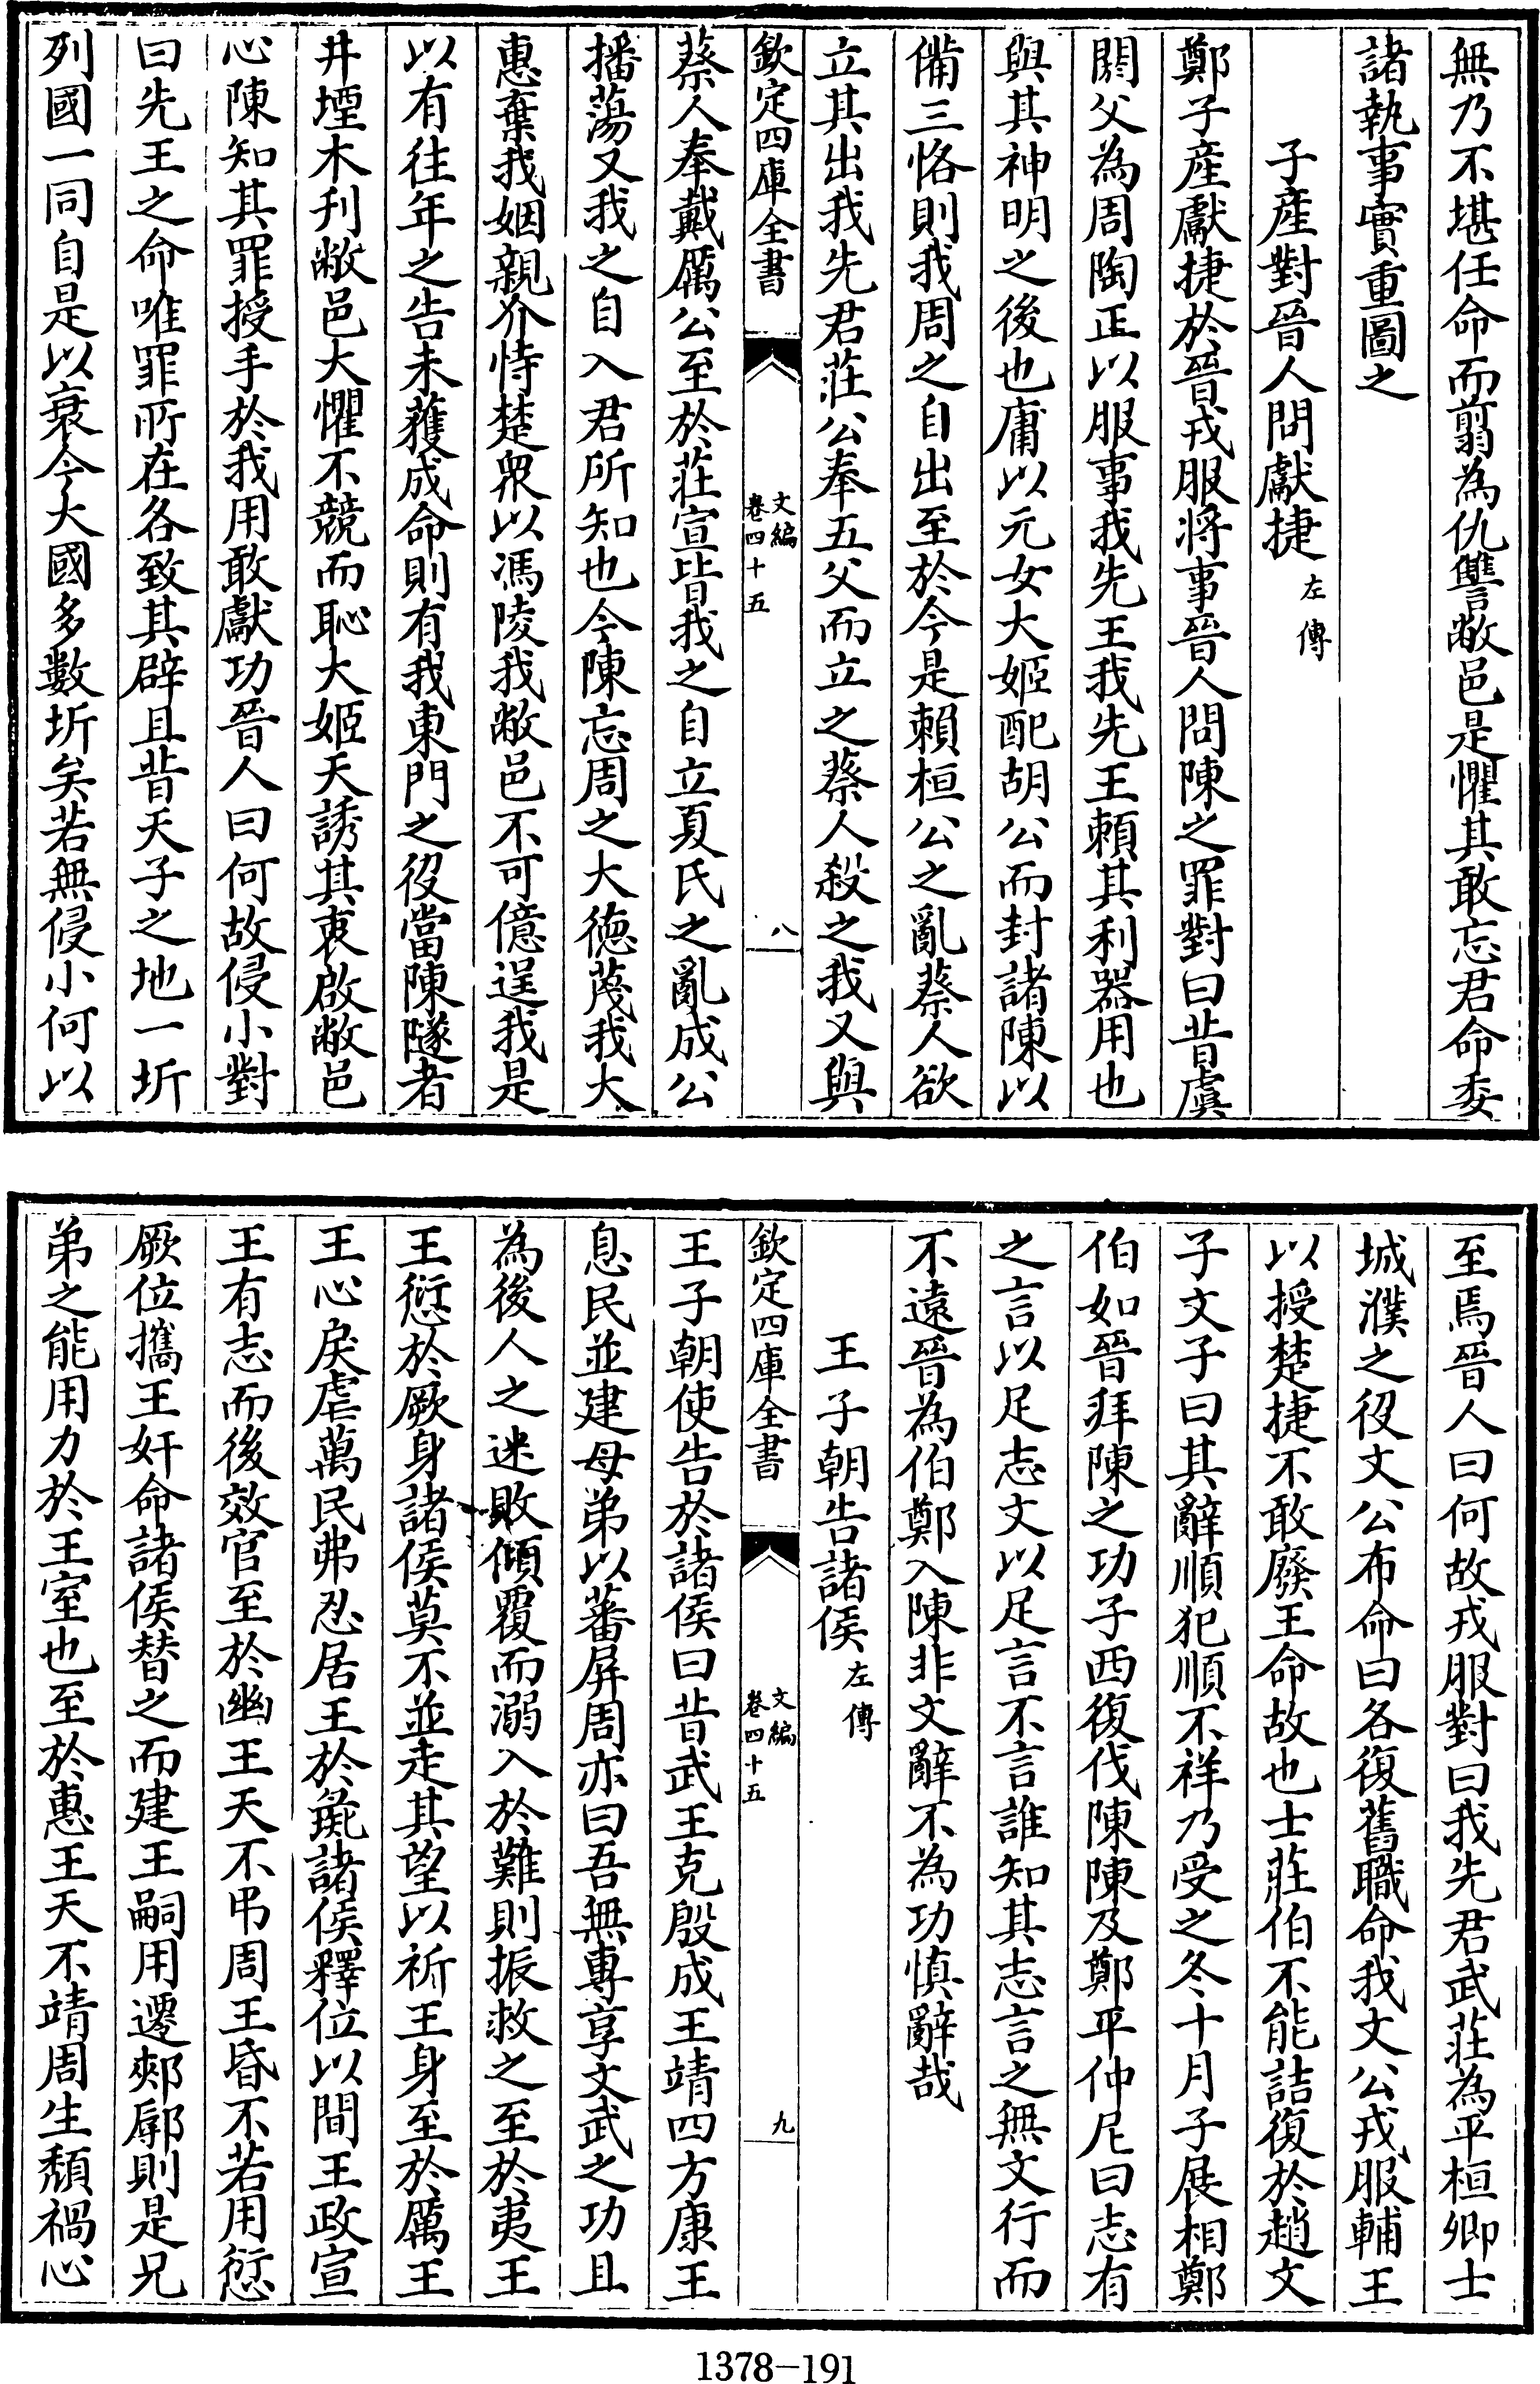 無乃不堪任命而翦為仇讐敝邑是懼其敢忘君命委
諸執事實重圖之
子産對晉人問獻捷左傳
鄭子産獻捷於晉戎服將事晉人問陳之罪對曰昔虞
閼父為周陶正以服事我先王我先王頼其利器用也
與其神明之後也庸以元女大姬配胡公而封諸陳以
備三恪則我周之自出至於今是賴桓公之亂蔡人欲
立其出我先君莊公奉五父而立之蔡人殺之我又與
欽定四庫全書
文編
卷四十五
八
蔡人奉戴厲公至於莊宣皆我之自立夏氏之亂成公
播蕩又我之自入君所知也今陳忘周之大徳蔑我大
惠棄我姻親介恃楚衆以馮陵我敝邑不可億逞我是
以有往年之告未獲成命則有我東門之役當陳隧者
井堙木刋敝邑大懼不競而恥大姬天誘其衷啟敝邑
心陳知其罪授手於我用敢獻功晉人曰何故侵小對
曰先王之命唯罪所在各致其辟且昔天子之地一圻
列國一同自是以衰今大國多數圻矣若無侵小何以
至焉晉人曰何故戎服對曰我先君武莊為平桓卿士
城濮之役文公布命曰各復舊職命我文公戎服輔王
以授楚捷不敢廢王命故也士莊伯不能詰復於趙文
子文子曰其辭順犯順不祥乃受之冬十月子展相鄭
伯如晉拜陳之功子西復伐陳陳及鄭平仲尼曰志有
之言以足志文以足言不言誰知其志言之無文行而
不遠晉為伯鄭入陳非文辭不為功慎辭哉
王子朝告諸侯左傳
欽定四庫全書
文編
卷四十五
九
王子朝使告於諸侯曰昔武王克殷成王靖四方康王
息民並建母弟以蕃屏周亦曰吾無專享文武之功且
為後人之迷敗傾覆而溺入於難則振救之至於夷王
王愆於厥身諸侯莫不並走其望以祈王身至於厲王
王心戾虐萬民弗忍居王於彘諸侯釋位以間王政宣
王有志而後效官至於幽王天不弔周王昏不若用愆
厥位攜王奸命諸侯替之而建王嗣用遷郟鄏則是兄
弟之能用力於王室也至於惠王天不靖周生頽禍心
1378-191